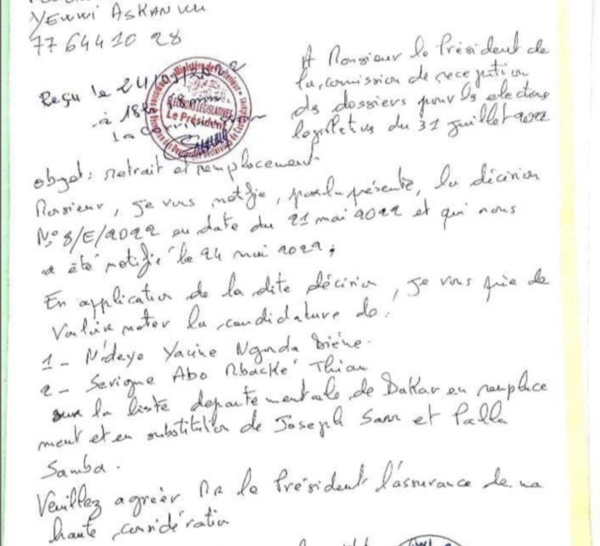 YEWWI ASKAN WI
77 644 10 28
Reçu le 24/05/2022
à 18h 18mn
La Commission
Le Président
A Monsieur le Président de
la commission de reception
des dossiers pour les elections
legislatives du 31 juillet 2022
objet: retrait et remplacement
Monsieur, je vous notifie, par la présente, la décision
N° 8/E/2022 en date du 21 mai 2022 et qui nous
a été notifié le 24 mai 2022;
En application de la dite décision, je vous prie de
Valoir noter la candidature de:
1 - Ndeye Yacine Ngonda Diène.
2 - Serigne Abo Mbacké Thiam
sur la liste departementale de Dakar en remplace
ment et en substitution de Joseph Sarr et Palla
Samba.
Veuillez agréer Mr le Président l'assurance de ma
haute considération